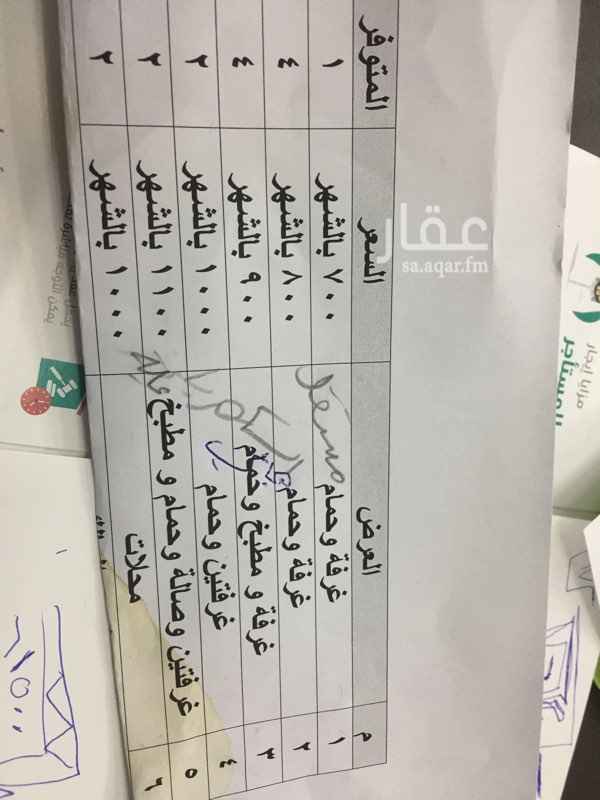 م العرض السعر المتوفر
١ غرفة وحمام ٧٠٠ بالشهر ١
٢ غرفة وحمام ٨٠٠ بالشهر ٤
٣ غرفة و مطبخ وحمام ٩٠٠ بالشهر ٤
٤ غرفتين وحمام ١٠٠٠ بالشهر ٢
٥ غرفتين وصالة وحمام و مطبخ ١١٠٠ بالشهر ٢
٦ محلات ١٠٠٠ بالشهر ٢
عقار
sa.aqar.fm
مزايا إيجار
للمستأجر